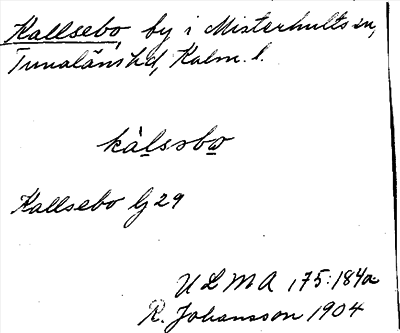 Kallsebo by i Misterhults sn,
Tunaläns hd, Kalm. l.
kàlsəbω
Kallsebo lj 29
ULMA 175:184a
R. Johansson 1904